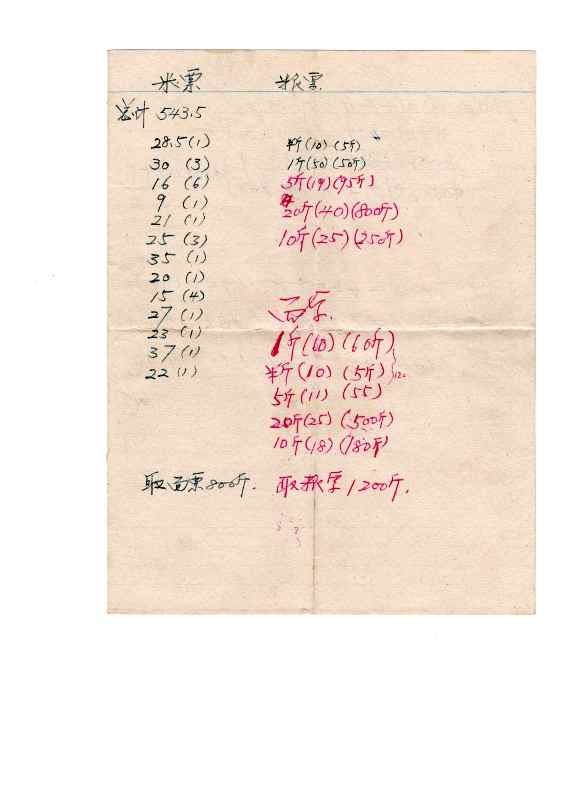 米票
总计 543.5
28.5(1)
30 (3)
16 (6)
9 (1)
21 (1)
25 (3)
35 (1)
20 (1)
15 (4)
27 (1)
23 (1)
37 (1)
22 (1)
取面票800斤.
粮票
半斤(10)(5斤)
1斤(50)(50斤)
5斤(19)(95斤)
20斤(40)(800斤)
10斤(25)(250斤)
面票.
1斤(60)(60斤)
半斤(10)(5斤)
5斤(11)(55)
20斤(25)(500斤)
10斤(18)(180斤)
取粮票1200斤.